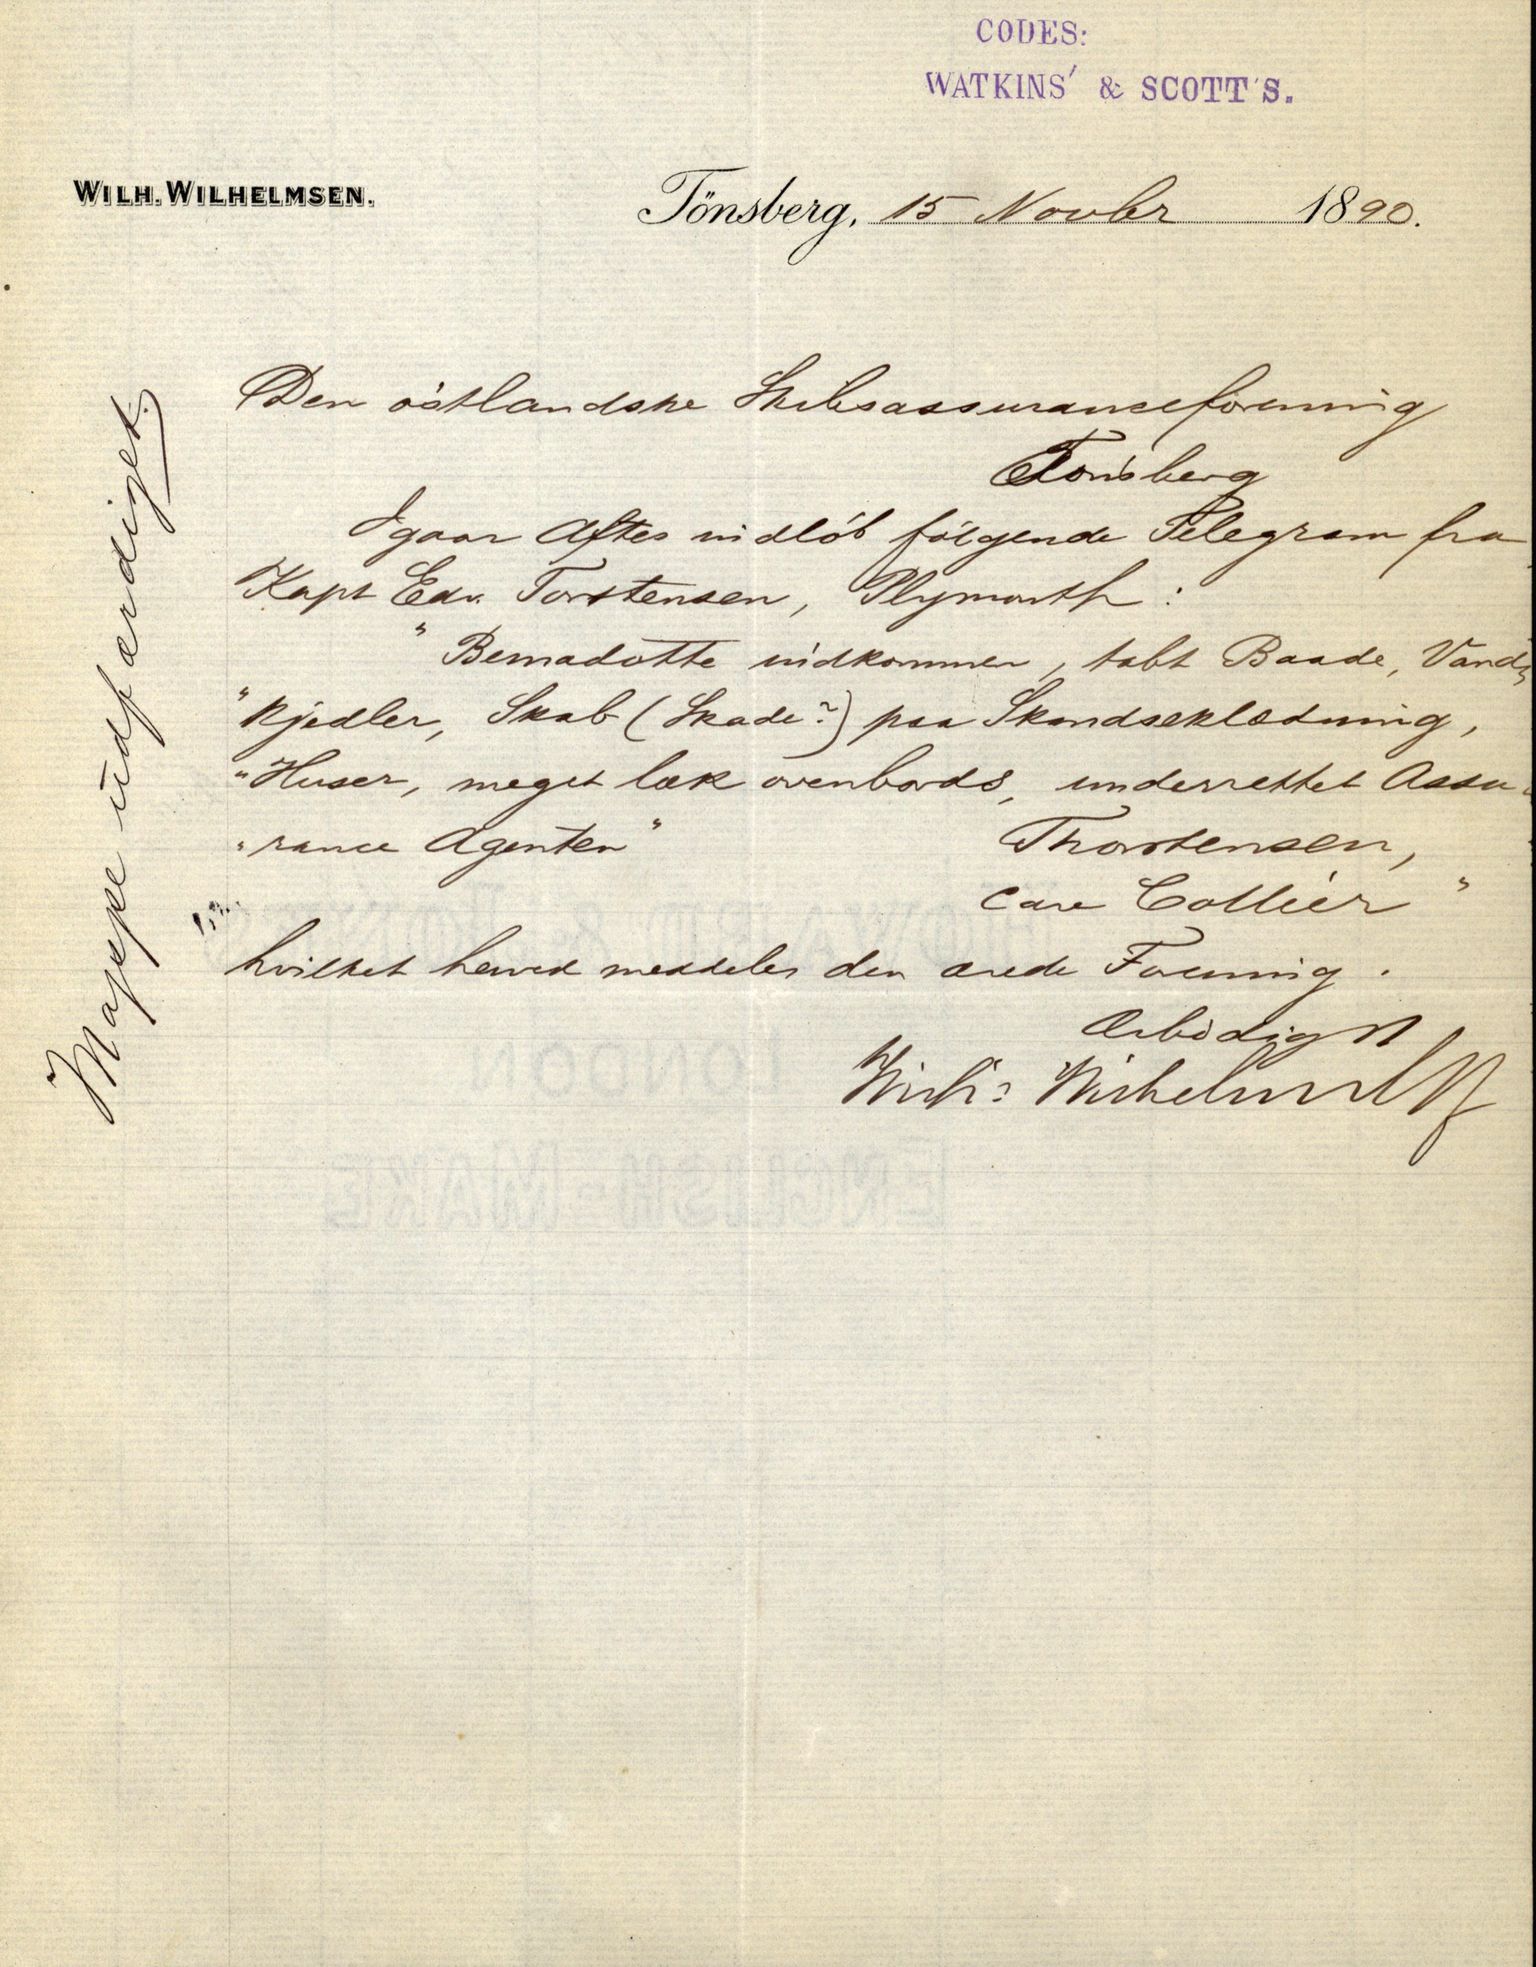 CODES:
WATKINS' & SCOTT'S.
WILH. WILHELMSEN.
Tönsberg, 15 Novbr 1890.
Den östlandske Skibsassuranceforening
Tönsberg
Igaar Aftes indlöb fölgende Telegram fra
Kapt Edv. Torstensen, Plymouth:
"Bernadotte indkommen, tabt Baade, Vand-
"kjedler, Skab (Skade?) paa Skandseklædning,
"Huser, meget læk ovenbords, underrettet Assu-
"rance Agenten"
Thorstensen,
care Collier"
hvilket herved meddeles den ærede Forening.
Ærbödigst
Wilh. Wilhelmsen
Mappe udfærdiget.
LONDON
ENGLISH-MAKE